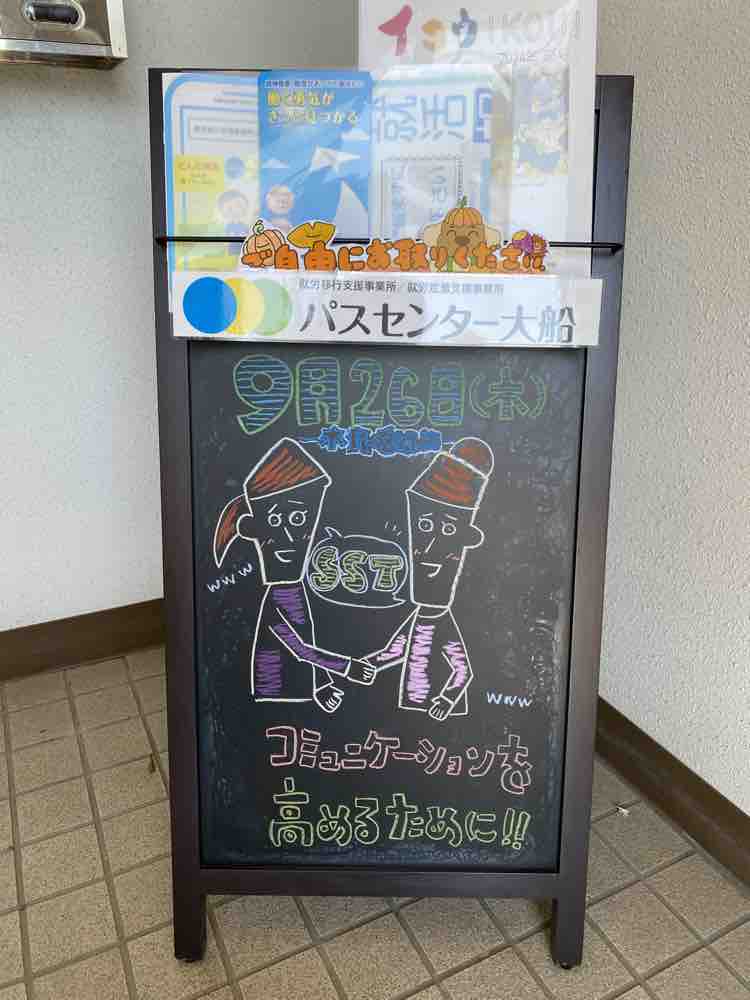 イコウ IKOU
働く勇気が
きっと見つかる
就活
ご自由にお取りください
就労移行支援事業所／就労定着支援事業所
パスセンター大船
9月26日(木)
SST
www
www
コミュニケーションを
高めるために!!